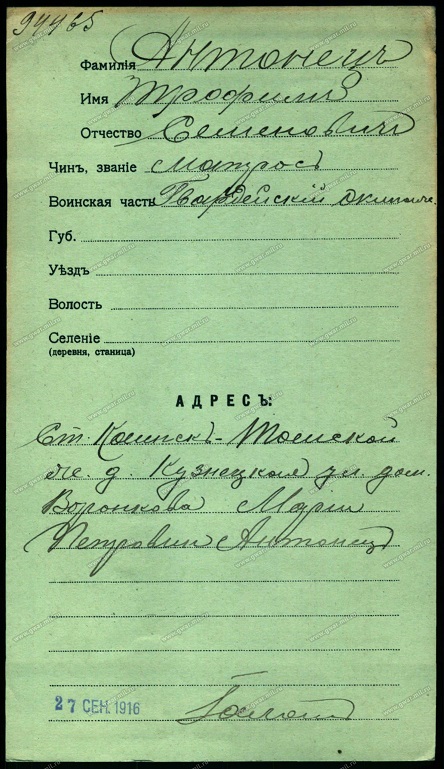 94465
Фамилія Антонецъ
Имя Трофимъ
Отчество Семеновичъ
Чинъ, званіе матросъ
Воинская часть Гвардейскій экипаж.
Губ.
Уѣздъ
Волость
Селеніе
(деревня, станица)
АДРЕСЪ:
Ст. Каинскъ-Томской
же. д. Кузнецкая ул. дом.
Воронкова Маріи
Петровни Антонецъ
27 СЕН. 1916